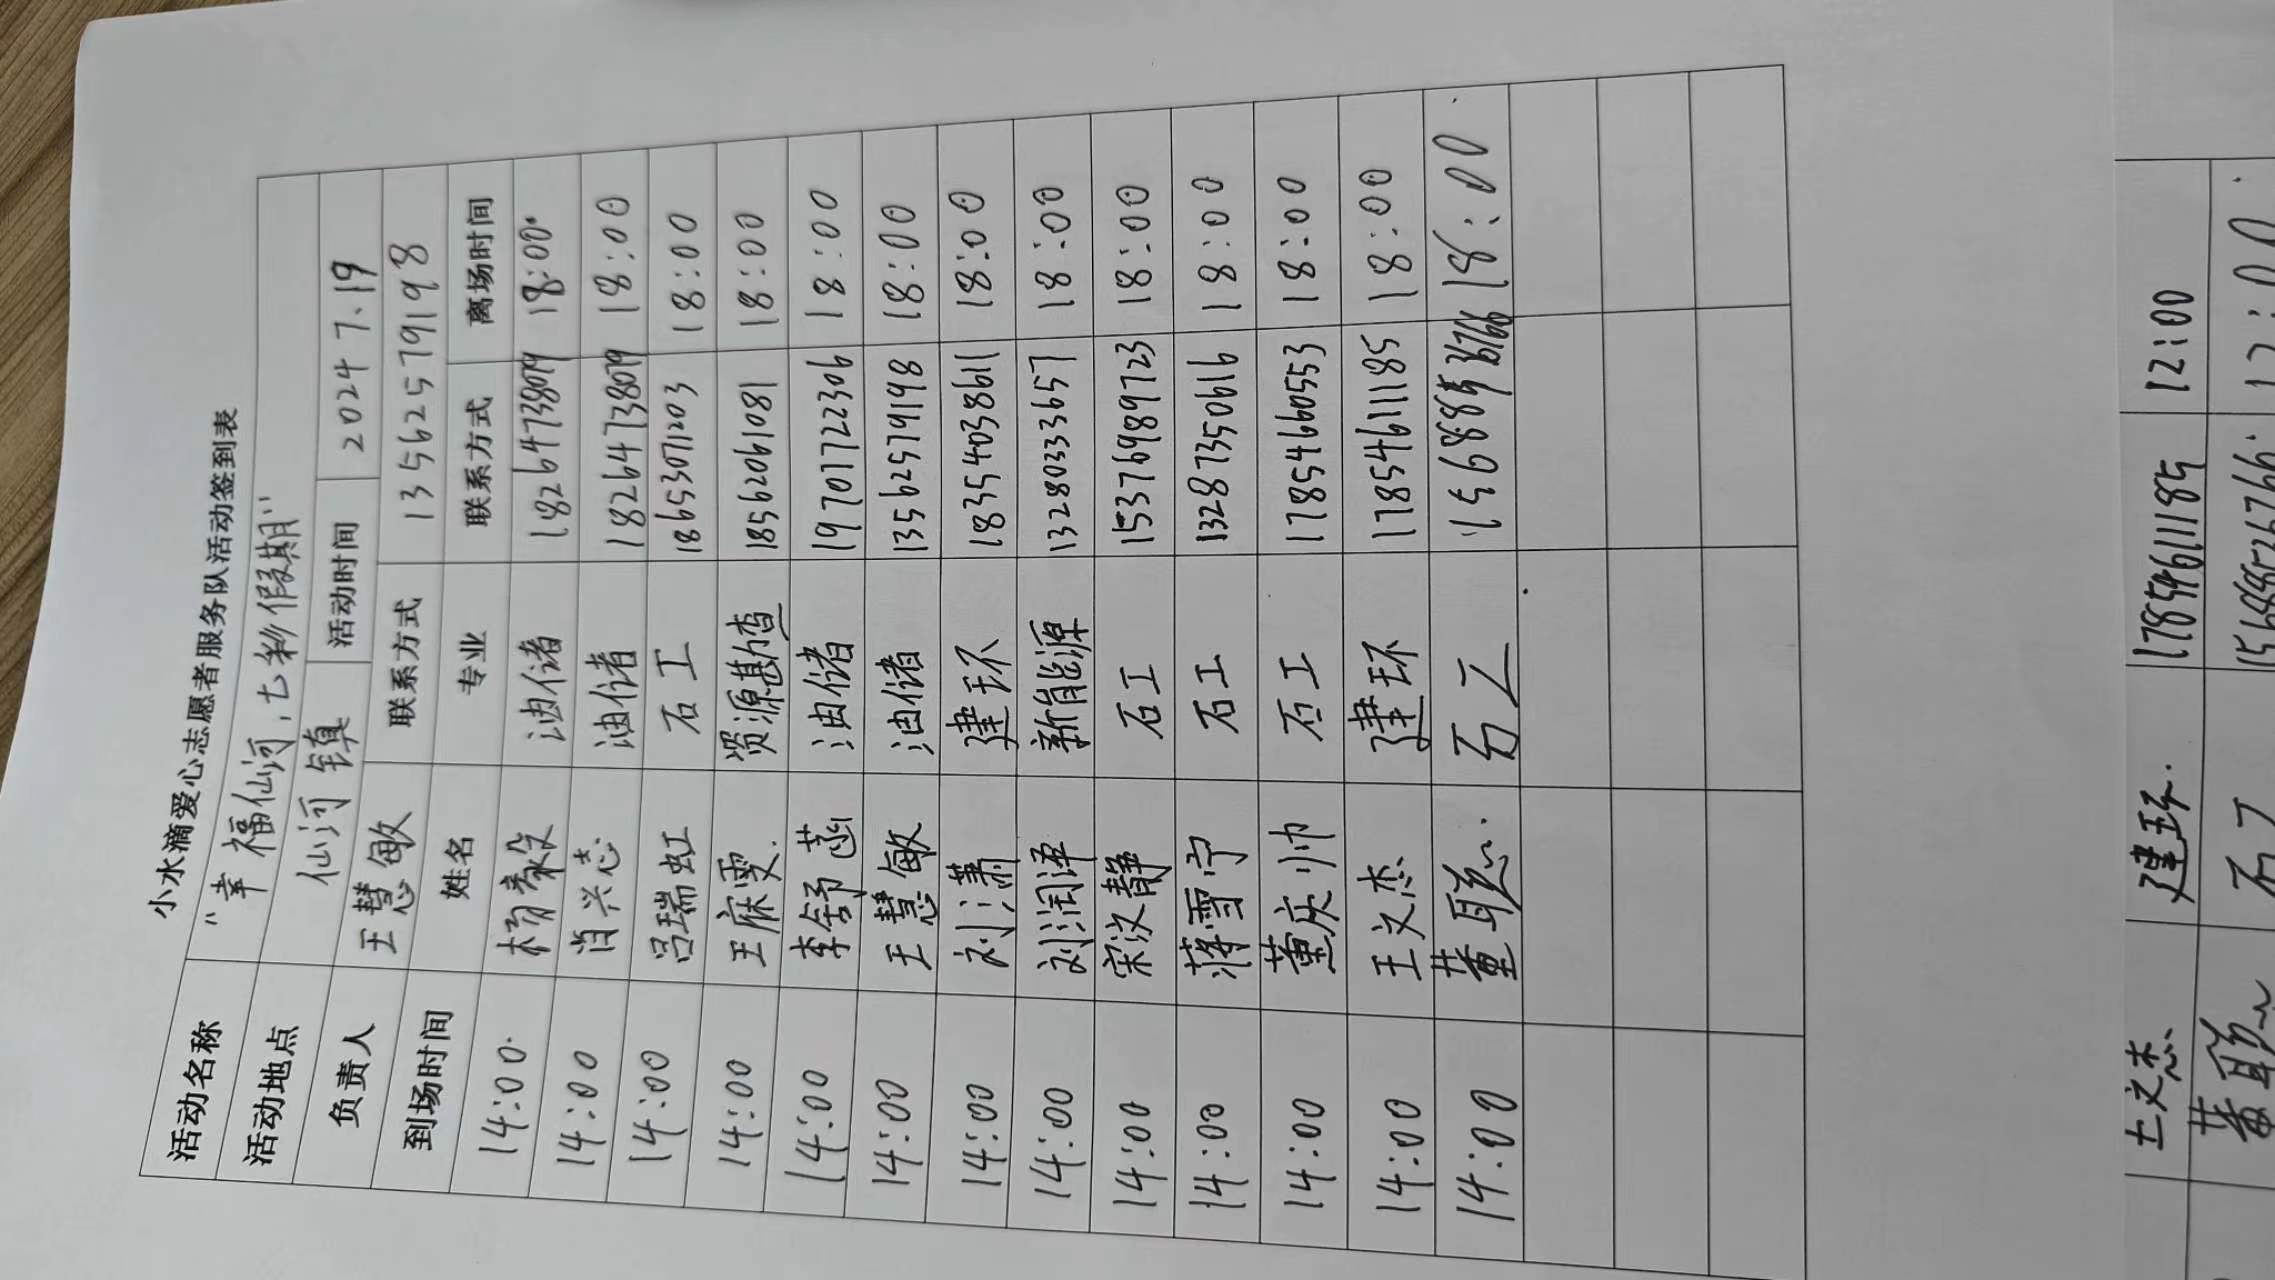 小水滴爱心志愿者服务队活动签到表
活动名称 "幸福仙河,七彩假期"
活动地点 仙河镇 活动时间 2024 7.19
负责人 王慧敏 联系方式 13562579198
到场时间 姓名 专业 联系方式 离场时间
14:00 杨毅 油储 18264738079 18:00
14:00 肖兴志 油储 18264738079 18:00
14:00 吕瑞虹 石工 18653071203 18:00
14:00 王麻雯 资源勘查 18562061081 18:00
14:00 李舒菡 油储 19701722306 18:00
14:00 王慧敏 油储 13562579198 18:00
14:00 刘潇 建环 18354038611 18:00
14:00 刘润泽 新能源 13280333657 18:00
14:00 宋汶静 石工 15376989723 18:00
14:00 蒋雪宁 石工 13287350616 18:00
14:00 董庆帅 石工 17854660553 18:00
14:00 王文杰 建环 17854611185 18:00
14:00 董聪 石工 18:00
王文杰 建环 17854611185 12:00
董聪 石工 15688526766 12:00